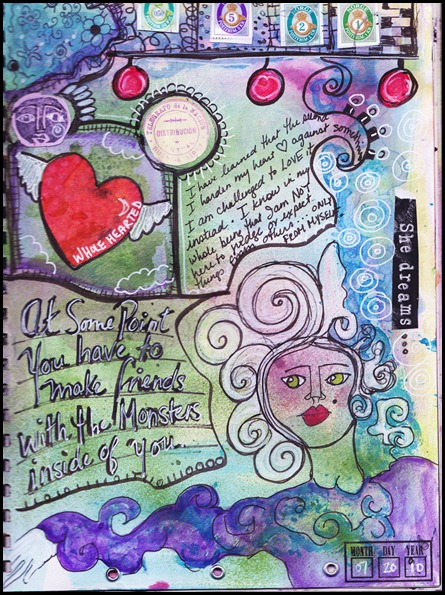 5
2
DISTRIBUCION
I have learned that the second
I harden my heart ♡ against something
I am challenged to LOVE it
instead. I know in my
whole being that I am NOT
here to judge or expect
things from others... ONLY
FROM MYSELF.
WHOLE HEARTED
She dreams...
At Some Point
You have to
make friends
with the Monsters
inside of you...
MONTH DAY YEAR
07 20 10